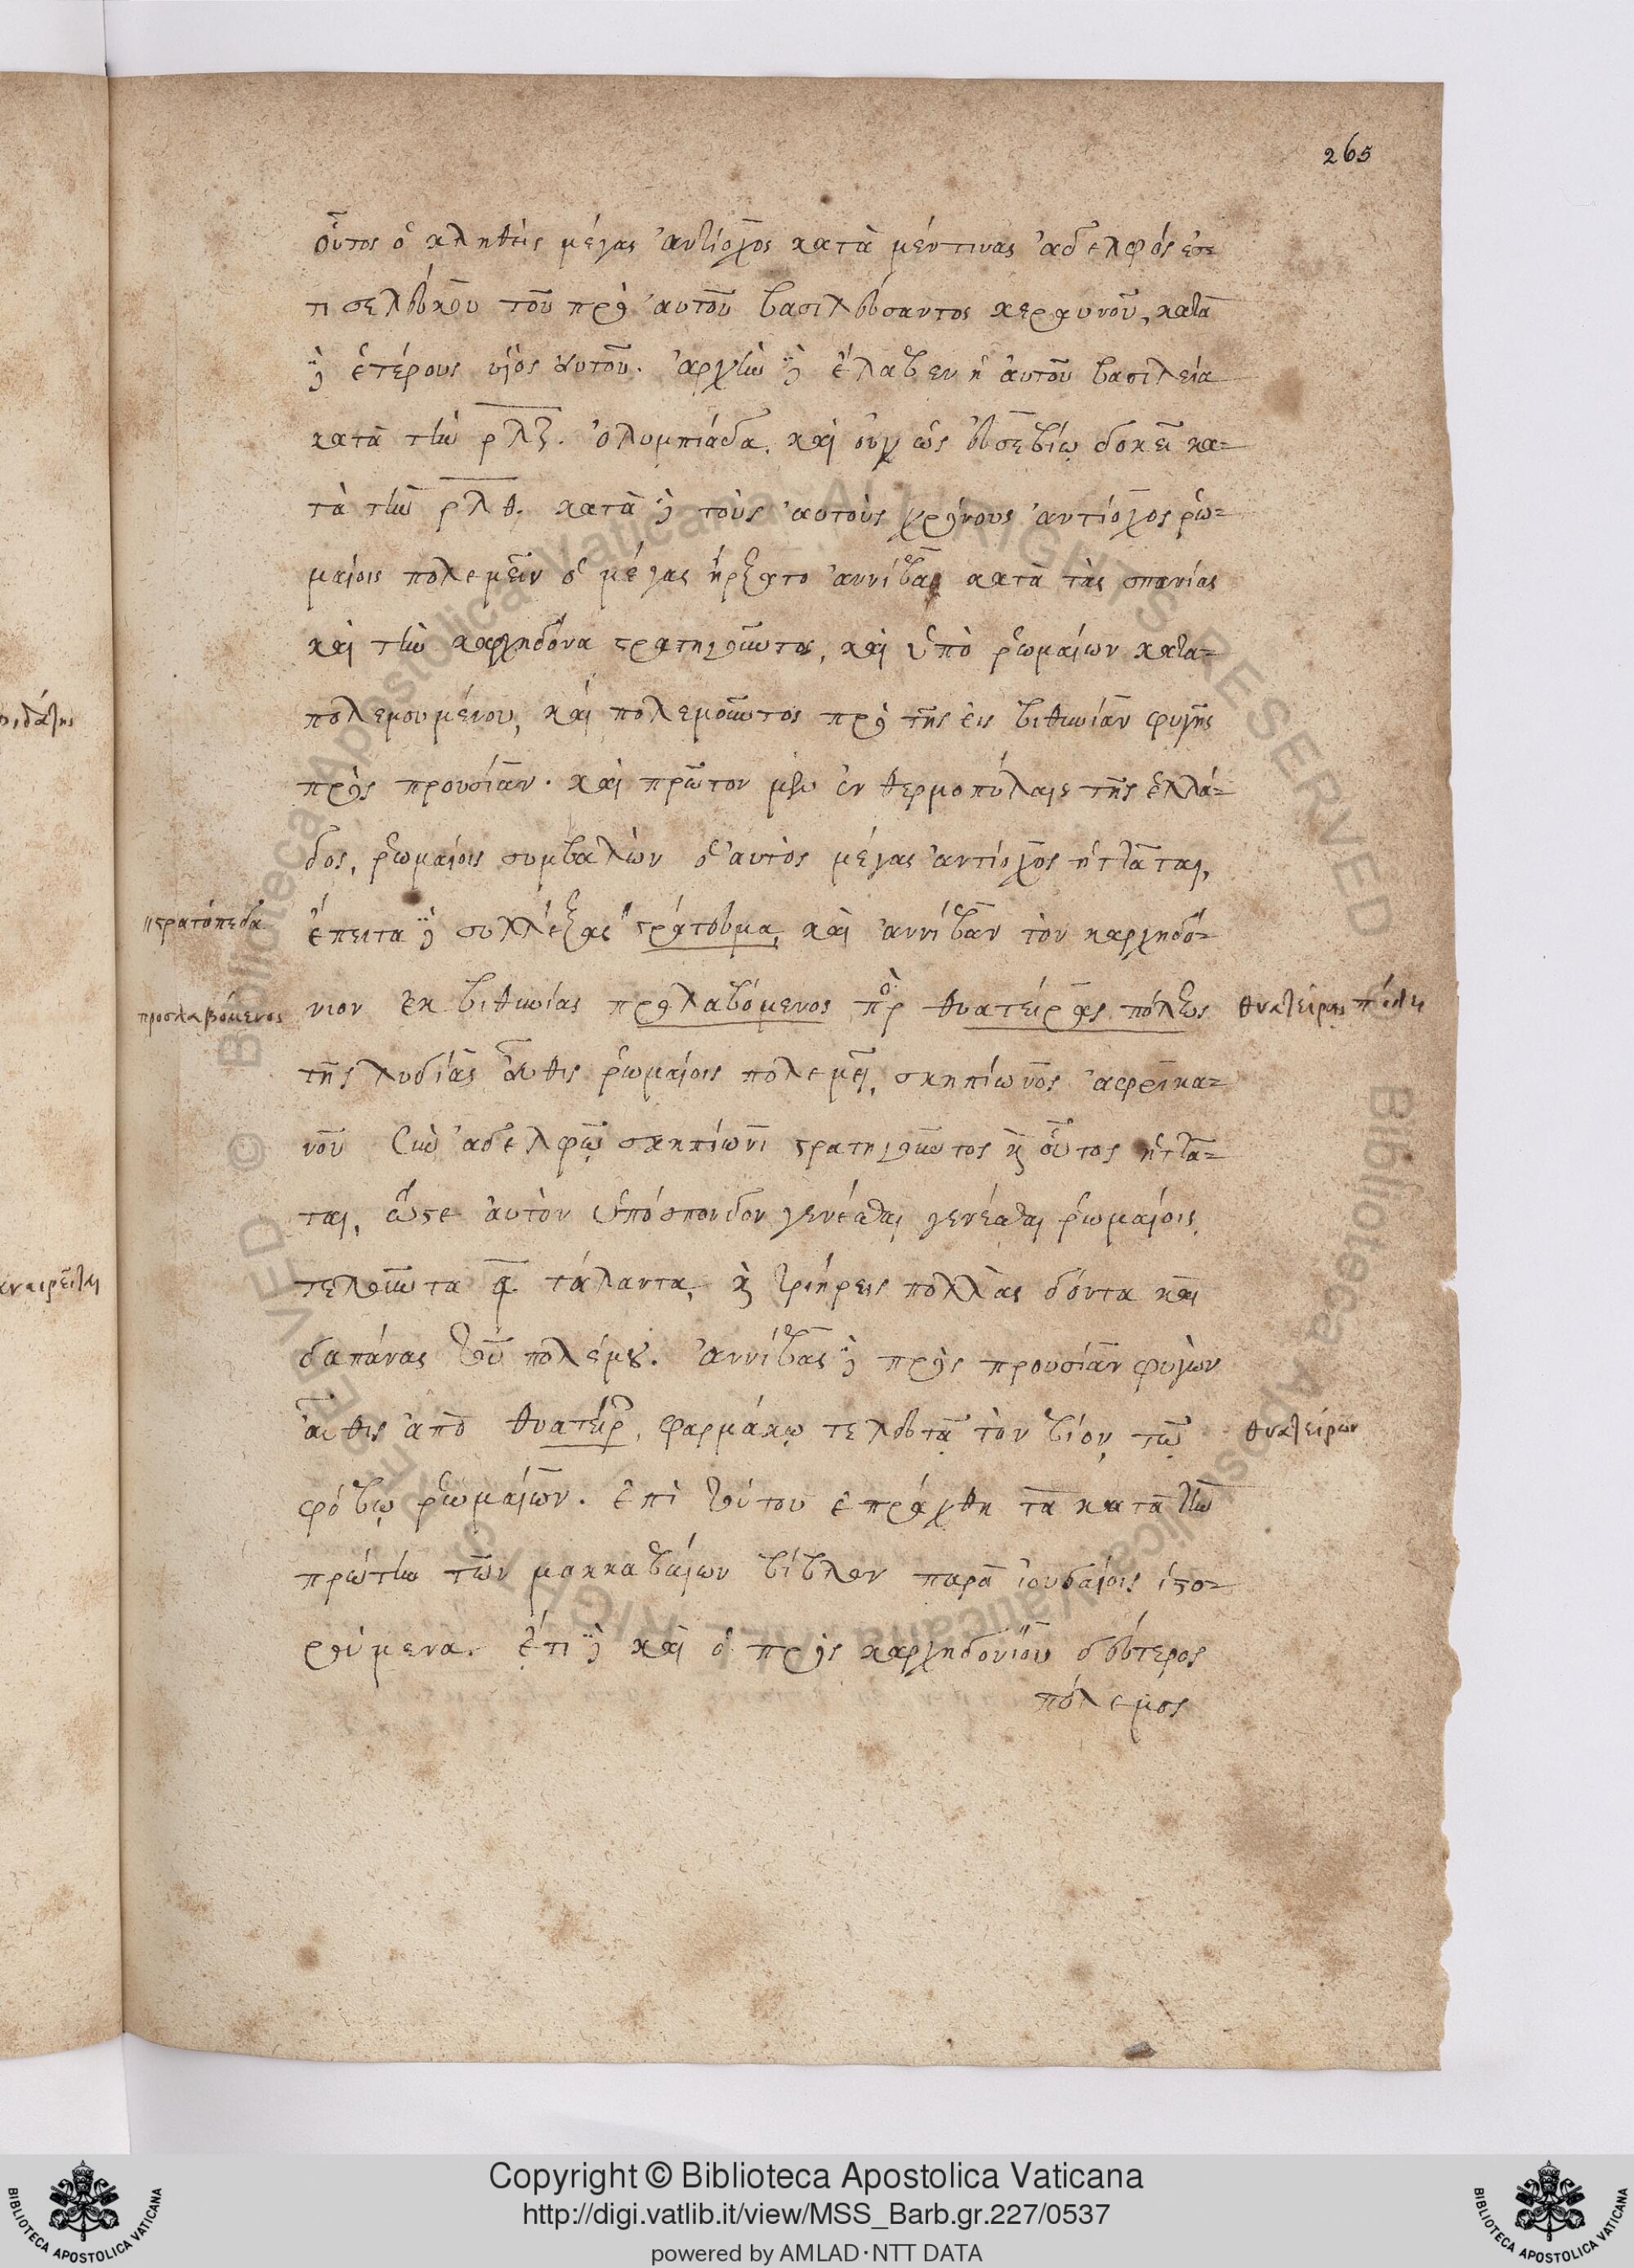 265
οὗτος ὁ κληθεὶς μέγας ἀντίοχος κατὰ μέν τινας ἀδελφός ἐσ-
τι σελεύκου τοῦ πρὸ αὐτοῦ βασιλεύσαντος κεραυνοῦ, κατὰ
δὲ ἑτέρους υἱὸς αὐτοῦ. ἀρχὴν δὲ ἔλαβεν ἡ αὐτοῦ βασιλεία
κατὰ τὴν ρλζ. ὀλυμπιάδα. καὶ οὐχ ὡς εὐσεβίῳ δοκεῖ κα-
τὰ τὴν ρλθ. κατὰ δὲ τοὺς αὐτοὺς χρόνους ἀντίοχος ῥω-
μαίοις πολεμεῖν ὁ μέγας ἤρξατο ἀννίβα κατὰ τὰς σπανίας
καὶ τὴν καρχηδόνα στρατηγοῦντος, καὶ ὑπὸ ῥωμαίων κατα-
πολεμουμένου, καὶ πολεμοῦντος πρὸ τῆς εἰς βιθυνίαν φυγῆς
πρὸς προυσίαν. καὶ πρῶτον μὲν ἐν θερμοπύλαις τῆς ἑλλά-
δος, ῥωμαίοις συμβαλὼν ὁ αὐτὸς μέγας ἀντίοχος ἡττᾶται,
στρατόπεδα
ἔπειτα δὲ συλλέξας στράτευμα, καὶ ἀννίβαν τὸν καρχηδό-
προσλαβόμενος
νιον ἐκ βιθυνίας προλαβόμενος περὶ θυατείρας πόλεως
θυατείρης πόλιν
τῆς λυδίας αὖθις ῥωμαίοις πολεμεῖ, σκηπίωνος ἀφρικα-
νοῦ σὺν ἀδελφῷ σκηπίωνι στρατηγοῦντος καὶ οὗτος ἡττᾶ-
ται, ὥστε αὐτὸν ὑπόσπονδον γενέσθαι γενέσθαι ῥωμαίοις
τελοῦντα ͵α τάλαντα, καὶ τριήρεις πολλὰς δόντα καὶ
δαπάνας τοῦ πολέμου. ἀννίβας δὲ πρὸς προυσίαν φυγὼν
αὖθις ἀπὸ θυατείρων, φαρμάκῳ τελευτᾷ τὸν βίον τῷ
θυατείρων
φόβῳ ῥωμαίων. ἐπὶ τούτου ἐπράχθη τὰ κατὰ τὴν
πρώτην τῶν μακκαβαίων βίβλον παρὰ ἰουδαίοις ἱστο-
ρούμενα. ἔτι δὲ καὶ ὁ πρὸς καρχηδονίους δεύτερος
πόλεμος
Copyright © Biblioteca Apostolica Vaticana
http://digi.vatlib.it/view/MSS_Barb.gr.227/0537
powered by AMLAD·NTT DATA
BIBLIOTECA APOSTOLICA VATICANA
BIBLIOTECA APOSTOLICA VATICANA